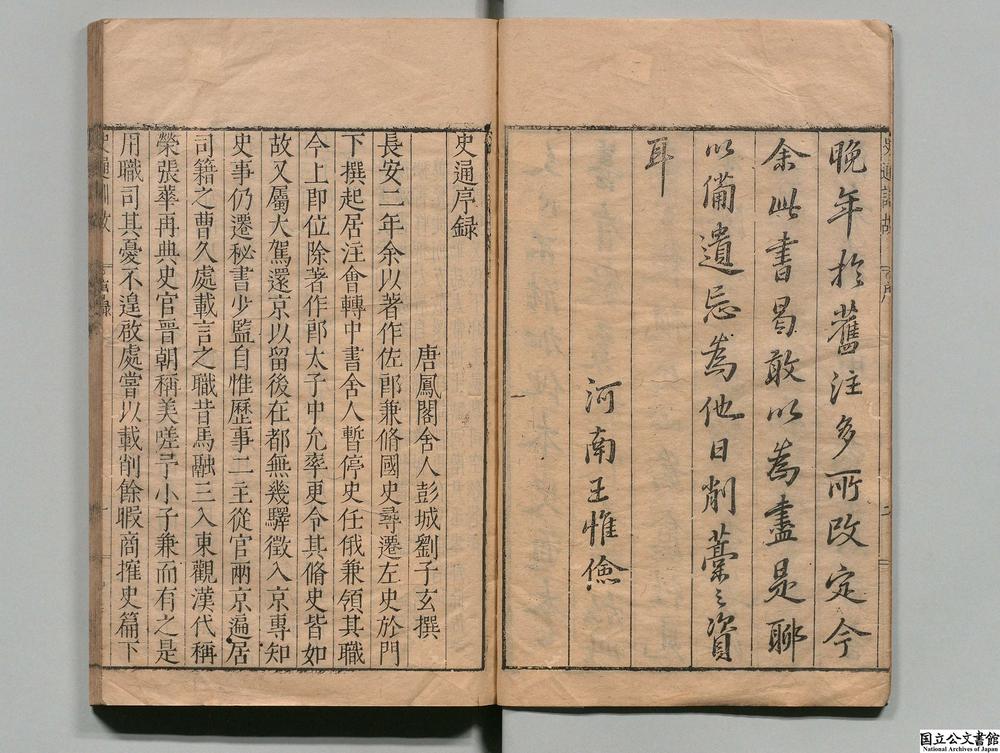 史通訓故 序 二
晚年於舊注多所改定今
余此書曷敢以為盡是聊
以備遺忘為他日削藁之資
耳
河南王惟儉
史通序録
唐鳳閣舍人彭城劉子玄撰
長安二年余以著作佐郎兼脩國史尋遷左史於門
下撰起居注會轉中書舍人暫停史任俄兼領其職
今上即位除著作郎太子中允率更令其脩史皆如
故又屬大駕還京以留後在都無幾驛徵入京專知
史事仍遷秘書少監自惟歷事二主從官兩京遍居
司籍之曹久處載言之職昔馬融三入東觀漢代稱
榮張華再典史官晉朝稱美嗟予小子兼而有之是
用職司其憂不遑啟處嘗以載削餘暇商搉史篇下
史通訓故 序録 一
国立公文書館
National Archives of Japan